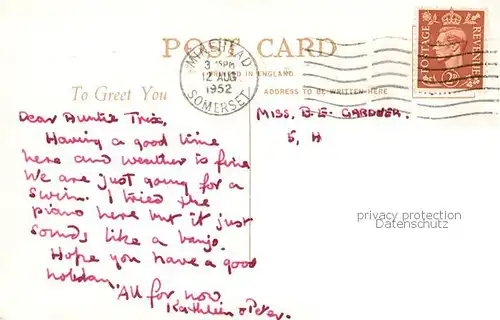 POST CARD
MINEHEAD
3 15PM
12 AUG
1952
SOMERSET
POSTAGE REVENUE
PRINTED IN ENGLAND
ADDRESS TO BE WRITTEN HERE
To Greet You
Dear Auntie Trix,
Having a good time
here and weather is fine
We are just going for a
swim. I tried the
piano here but it just
sounds like a banjo.
Hope you have a good
holiday.
All for now
Kathleen & Peter.
MISS. B.E. GARDNER.
5, H
privacy protection
Datenschutz